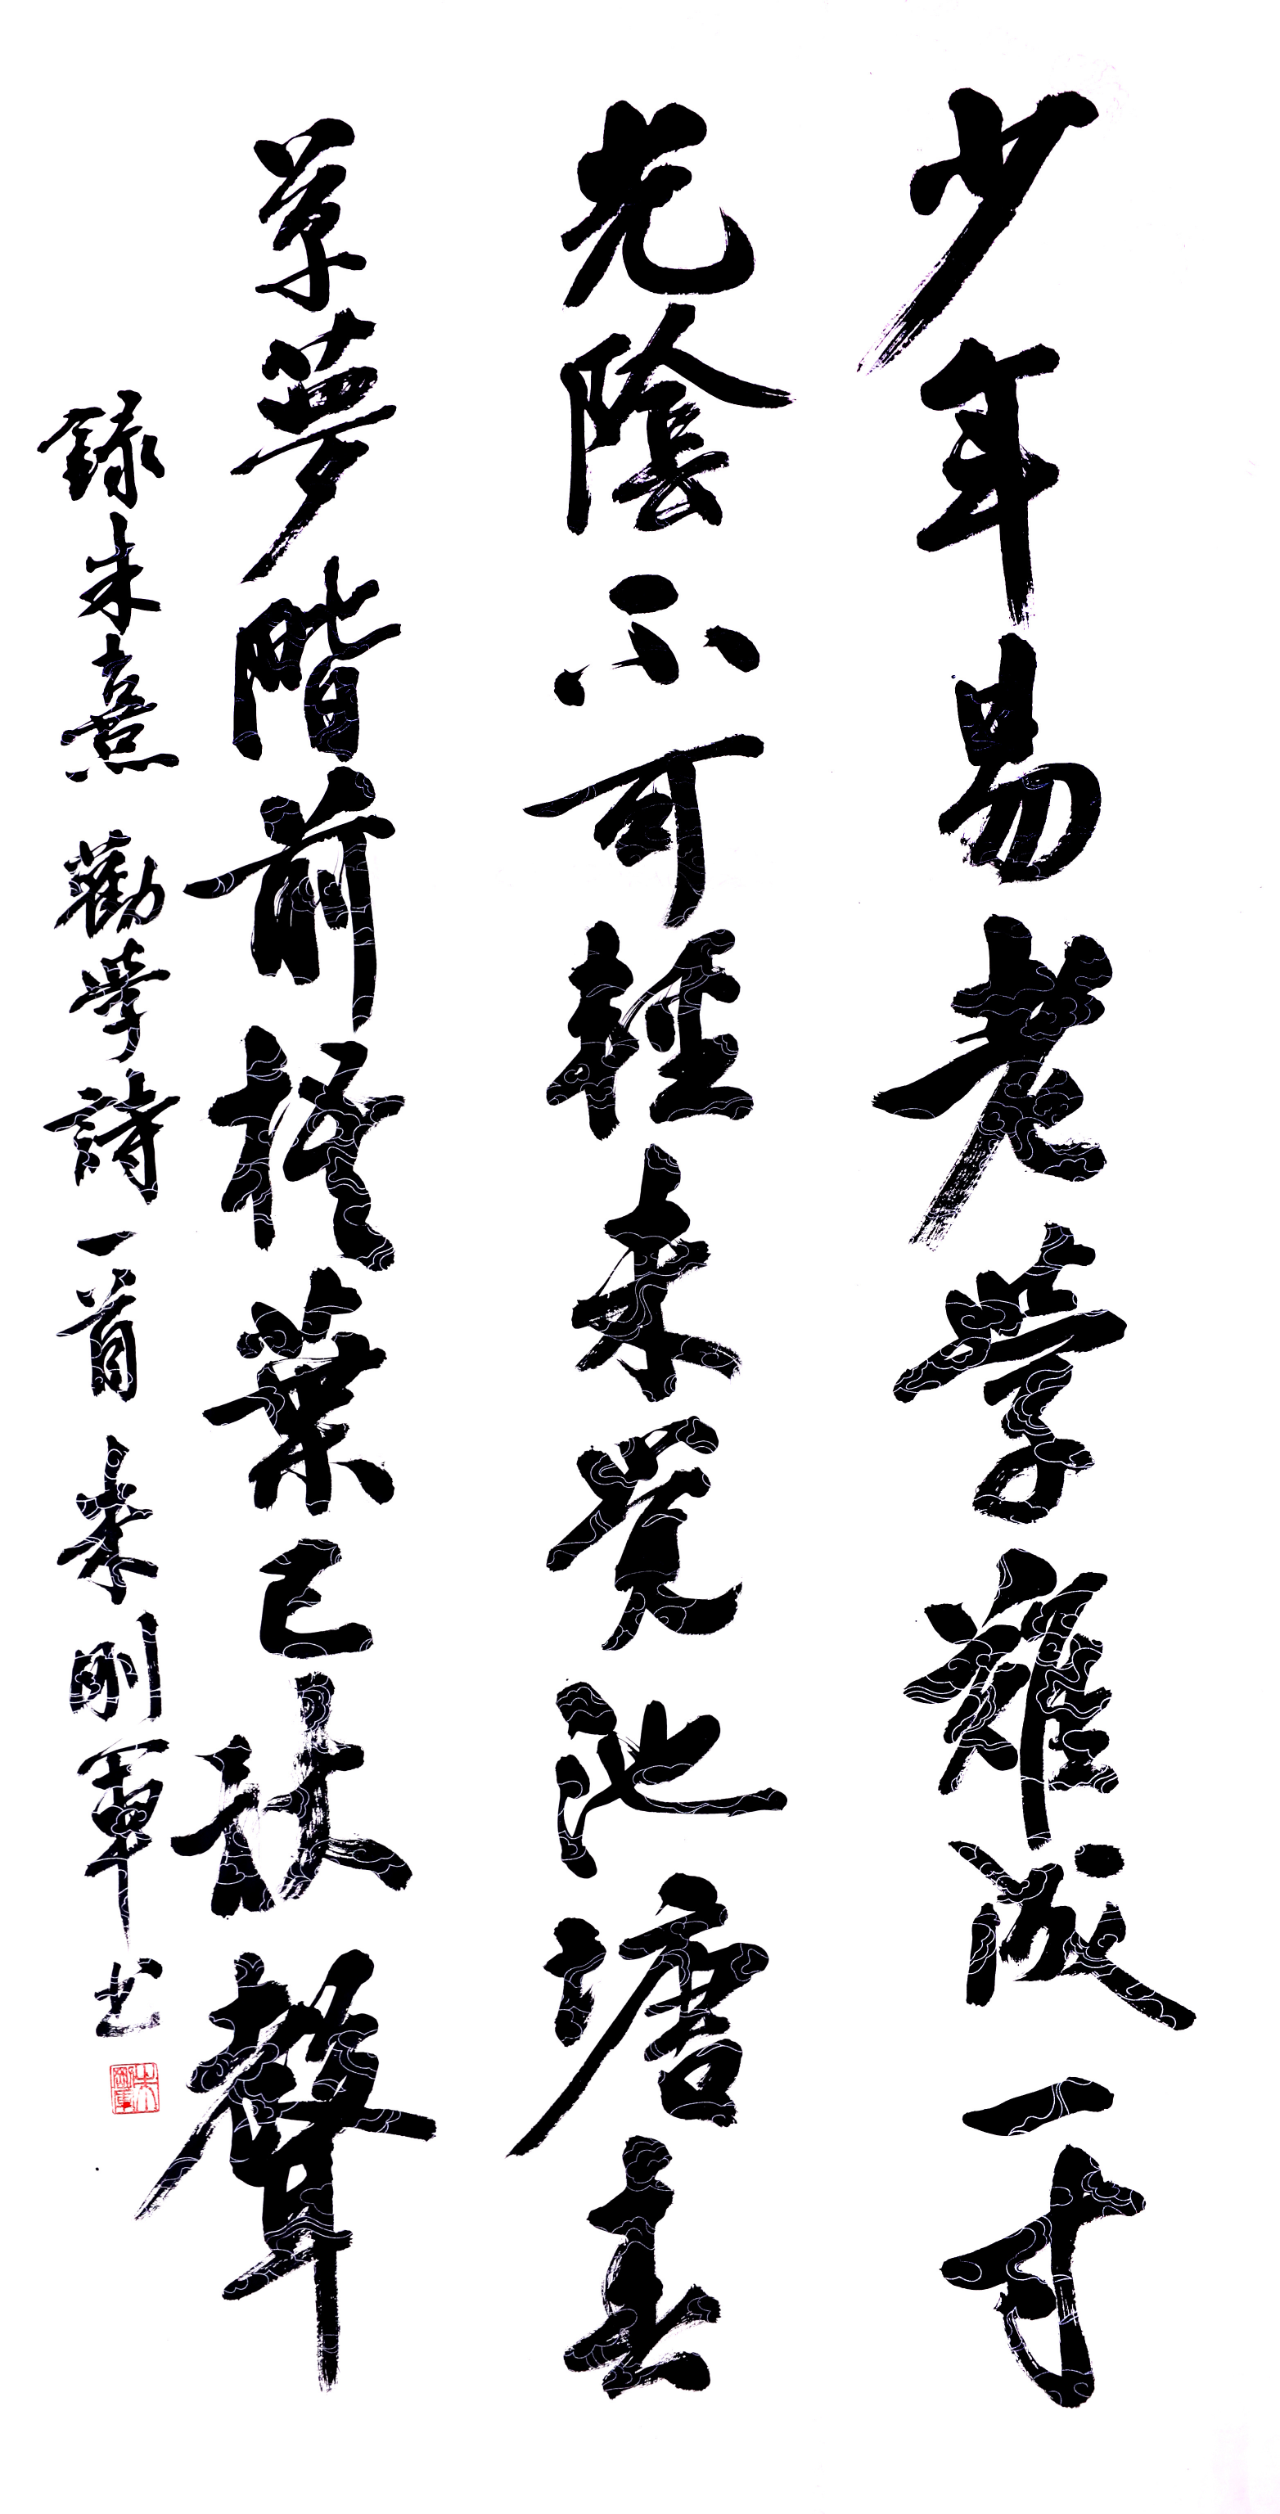 少年易老學難成一寸
光陰不可輕未覺池塘春
草夢階前梧葉已秋聲
錄朱熹 勸學詩一首 朱刚軍书